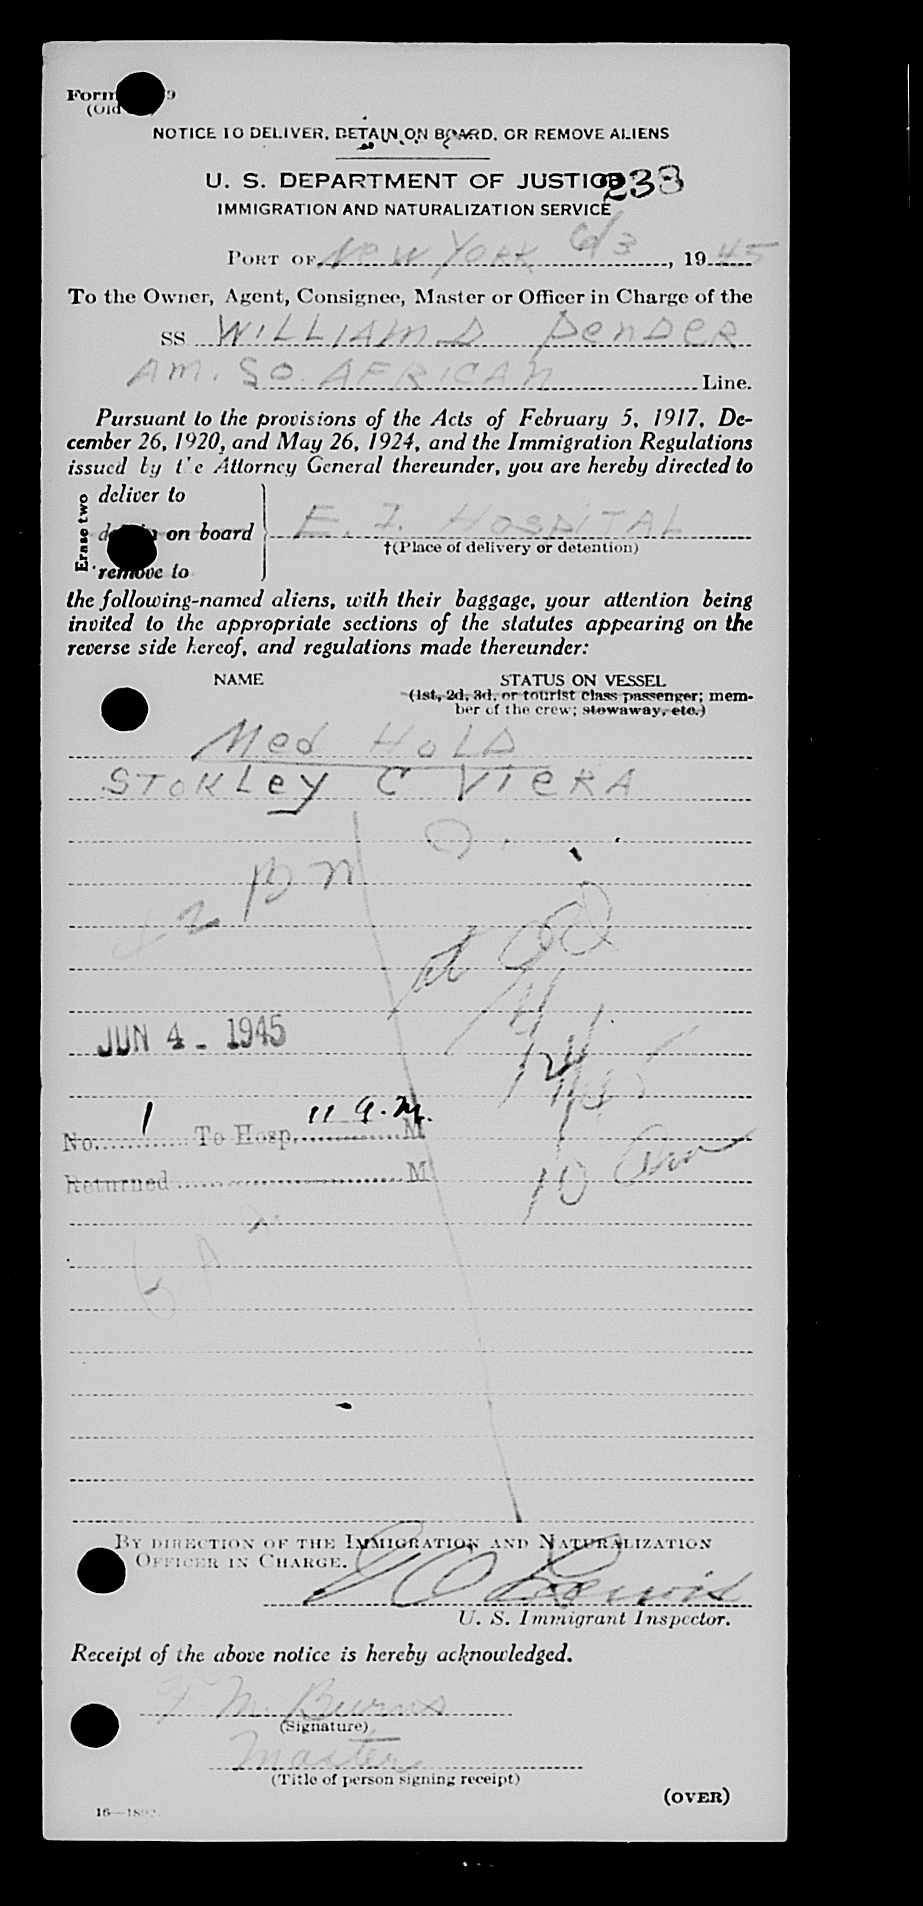 Form 9
(Old
NOTICE TO DELIVER, DETAIN ON BOARD, OR REMOVE ALIENS
U. S. DEPARTMENT OF JUSTICE
238
IMMIGRATION AND NATURALIZATION SERVICE
PORT OF NEW YORK 6/3, 1945
To the Owner, Agent, Consignee, Master or Officer in Charge of the
SS WILLIAM D PENDER
AM. SO. AFRICAN Line.
Pursuant to the provisions of the Acts of February 5, 1917, De-
cember 26, 1920, and May 26, 1924, and the Immigration Regulations
issued by the Attorney General thereunder, you are hereby directed to
Erase two
deliver to
detain on board
remove to
E. I. HOSPITAL
†(Place of delivery or detention)
the following-named aliens, with their baggage, your attention being
invited to the appropriate sections of the statutes appearing on the
reverse side hereof, and regulations made thereunder:
NAME
STATUS ON VESSEL
(1st, 2d, 3d, or tourist class passenger; mem-
ber of the crew; stowaway, etc.)
Med HOLD
STOKLey C VIeRA
2 pm
JUN 4 - 1945
No. 1 To Hosp. 11 a.m. M
Returned M
10 am
BY DIRECTION OF THE IMMIGRATION AND NATURALIZATION
OFFICER IN CHARGE.
Lewis
U. S. Immigrant Inspector.
Receipt of the above notice is hereby acknowledged.
F M. Burns
(Signature)
Master
(Title of person signing receipt)
(OVER)